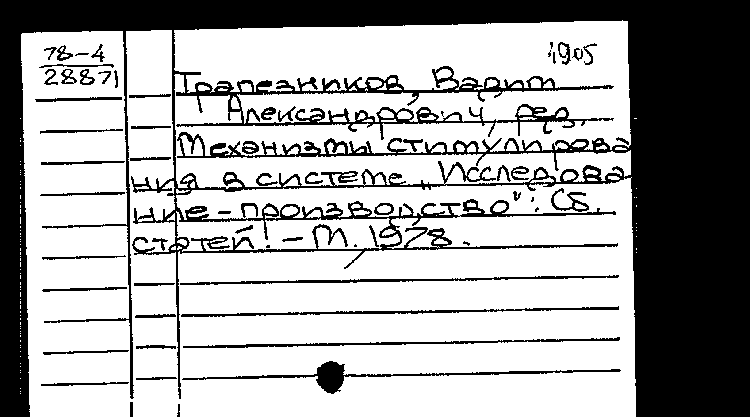 78-4
28871
1905
Трапезников, Вадим
Александрович, ред.
Механизмы стимулирова
ния в системе „Исследова
ние-производство": Сб.
статей! - М. 1978.